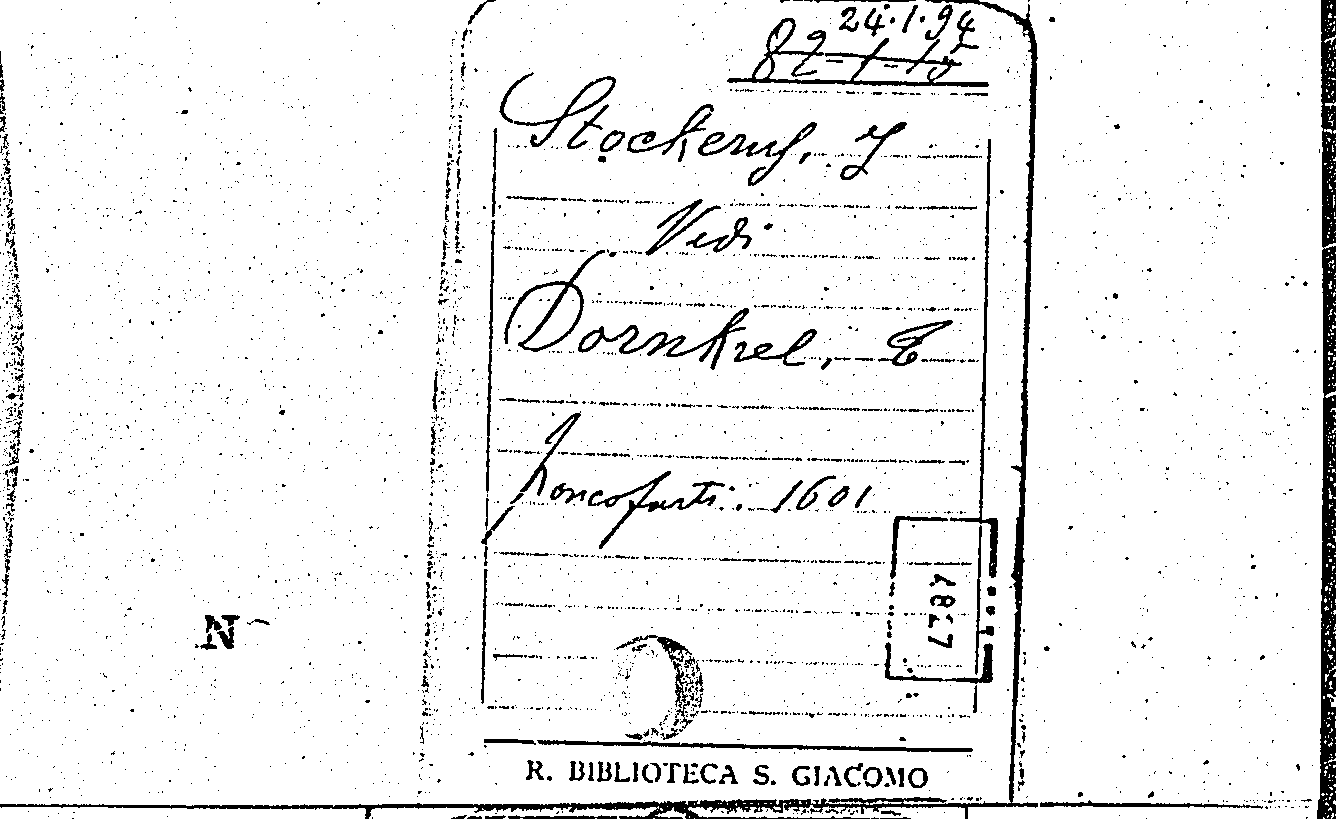 24.1.94
82-1-15
Stockerus, J
Vedi
Dornkrel, T
Francofurti. 1601
7827
N
R. BIBLIOTECA S. GIACOMO